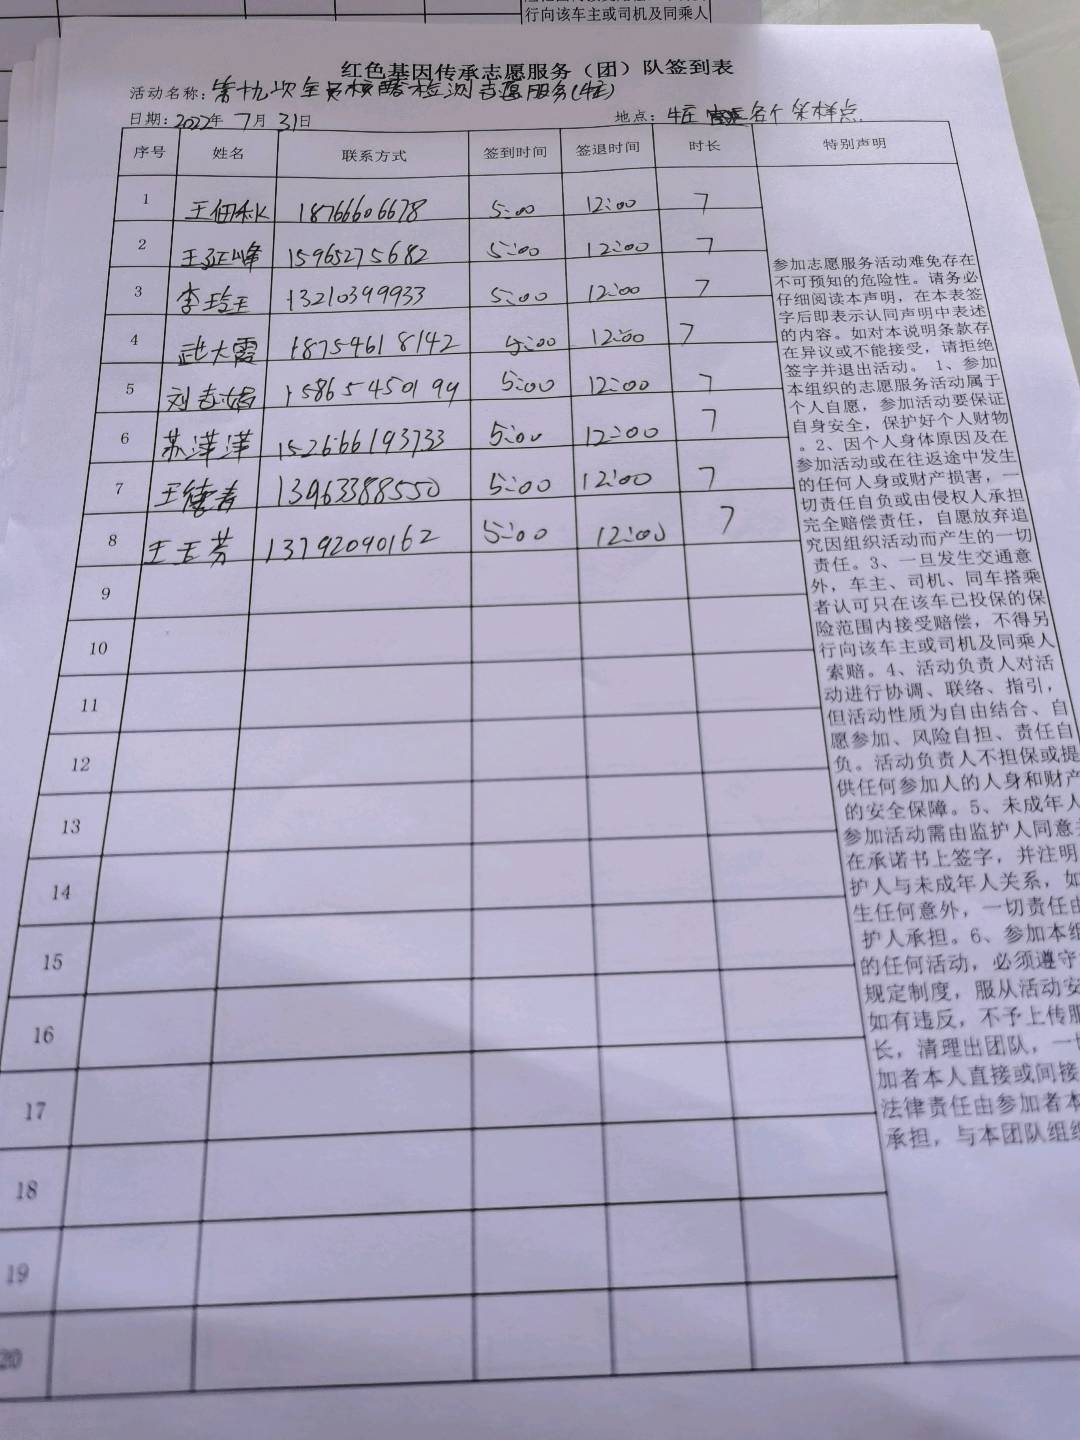 行向该车主或司机及同乘人
红色基因传承志愿服务（团）队签到表
活动名称：第十九次全员核酸检测志愿服务(牛庄)
日期：2022年 7月 31日
地点：牛庄 各个采样点
序号 姓名 联系方式 签到时间 签退时间 时长 特别声明
1 18766606678 5:00 12:00 7
2 王延峰 15965275682 5:00 12:00 7
3 李玲玉 13210399933 5:00 12:00 7
4 武大霞 18754618142 5:00 12:00 7
5 刘志娟 15865450199 5:00 12:00 7
6 苏洋洋 15266193733 5:00 12:00 7
7 王德青 13963388550 5:00 12:00 7
8 王玉芳 13792090162 5:00 12:00 7
9
10
11
12
13
14
15
16
17
18
19
20
参加志愿服务活动难免存在
不可预知的危险性。请务必
仔细阅读本声明，在本表签
字后即表示认同声明中表述
的内容。如对本说明条款存
在异议或不能接受，请拒绝
签字并退出活动。 1、参加
本组织的志愿服务活动属于
个人自愿，参加活动要保证
自身安全，保护好个人财物
。2、因个人身体原因及在
参加活动或在往返途中发生
的任何人身或财产损害，一
切责任自负或由侵权人承担
完全赔偿责任，自愿放弃追
究因组织活动而产生的一切
责任。3、一旦发生交通意
外，车主、司机、同车搭乘
者认可只在该车已投保的保
险范围内接受赔偿，不得另
行向该车主或司机及同乘人
索赔。4、活动负责人对活
动进行协调、联络、指引，
但活动性质为自由结合、自
愿参加、风险自担、责任自
负。活动负责人不担保或提
供任何参加人的人身和财产
的安全保障。5、未成年人
参加活动需由监护人同意
在承诺书上签字，并注明
护人与未成年人关系，如
生任何意外，一切责任由
护人承担。6、参加本组
的任何活动，必须遵守
规定制度，服从活动安
如有违反，不予上传服
长，清理出团队，一切
加者本人直接或间接
法律责任由参加者本
承担，与本团队组织